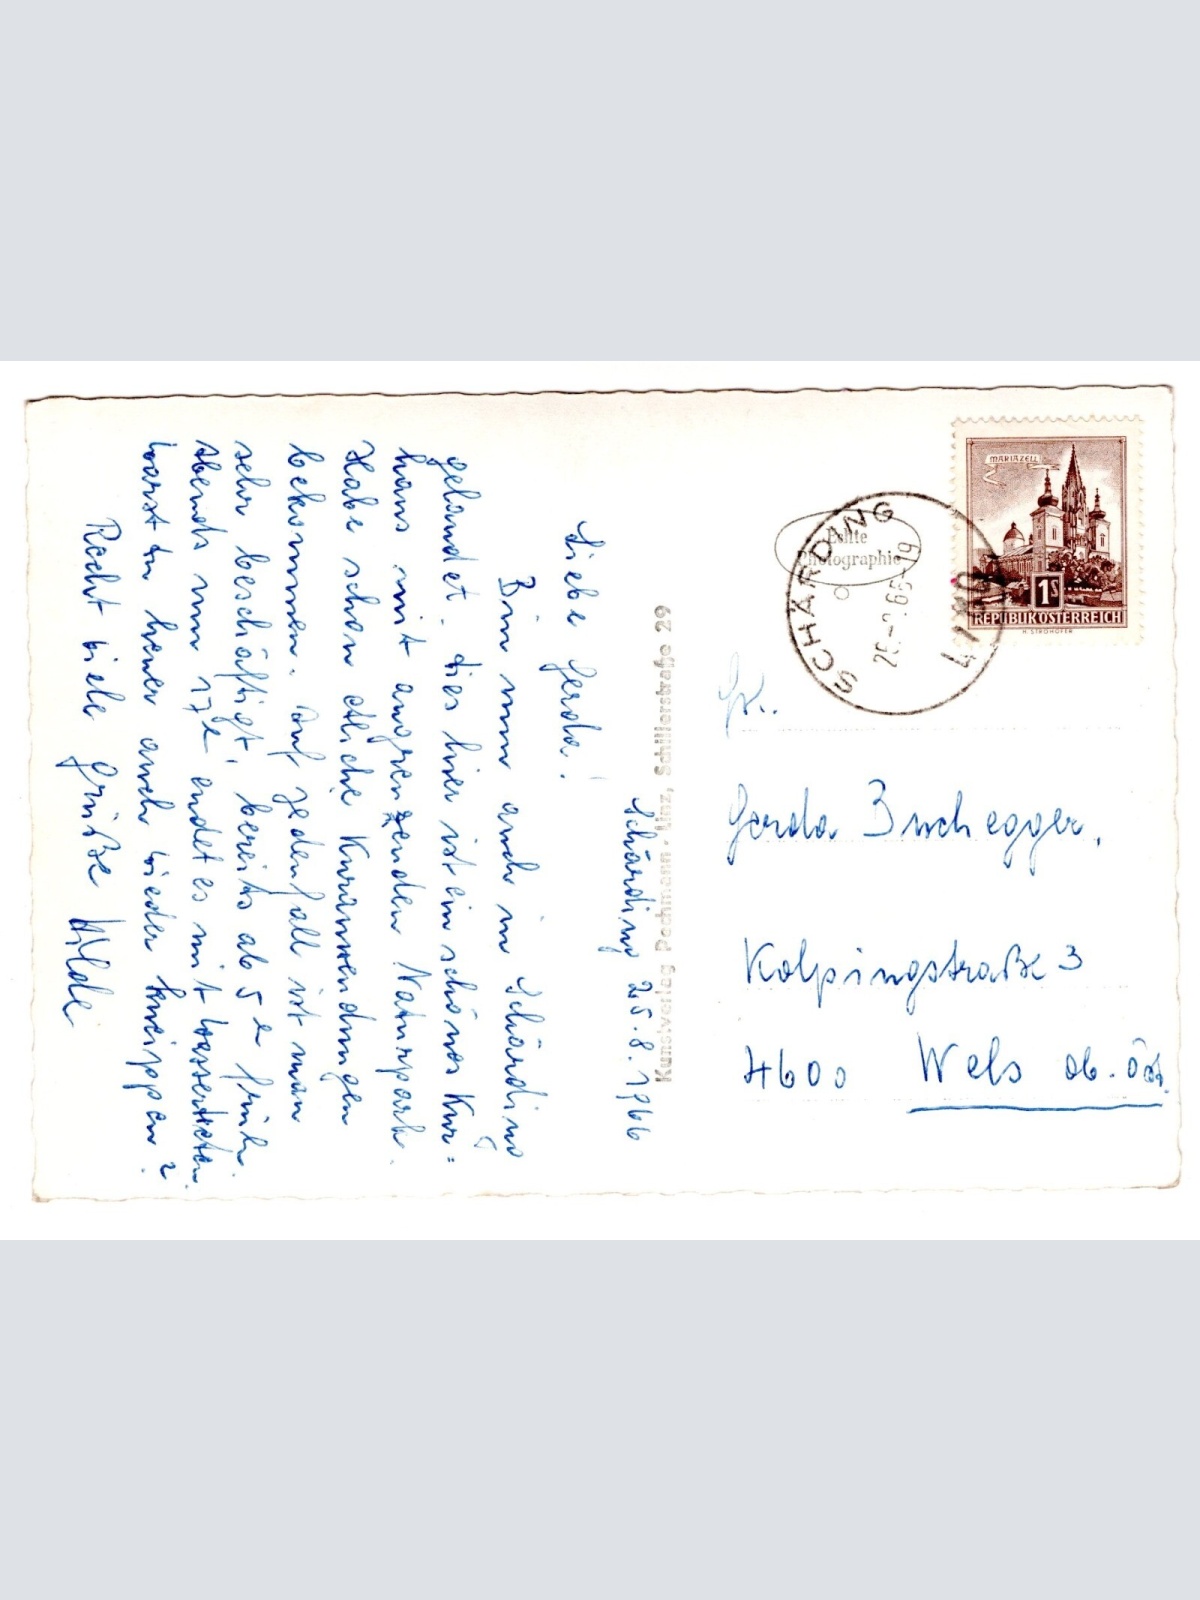 Schärding 25.8.1966
Liebe Gerda!
Bin nun auch in Schärding
gelandet. Dies hier ist ein schönes Kur=
haus mit angrenzenden Naturpark.
Habe schon etliche Kuranwendungen
bekommen. Auf jedenfall ist man
sehr beschäftigt, bereits ab 5 h früh.
Abends um 17 h endet es mit Wassertreten.
Warst du heuer auch wieder kneippen?
Recht viele Grüße Hilde
Kunstverlag Pechmann · Linz, Schillerstraße 29
Echte
Photographie
SCHÄRDING
4780
MARIAZELL
1S
REPUBLIK ÖSTERREICH
H. STROHOFER
Fr.
Gerda Buchegger,
Kolpingstraße 3
4600 Wels ob. Öst.